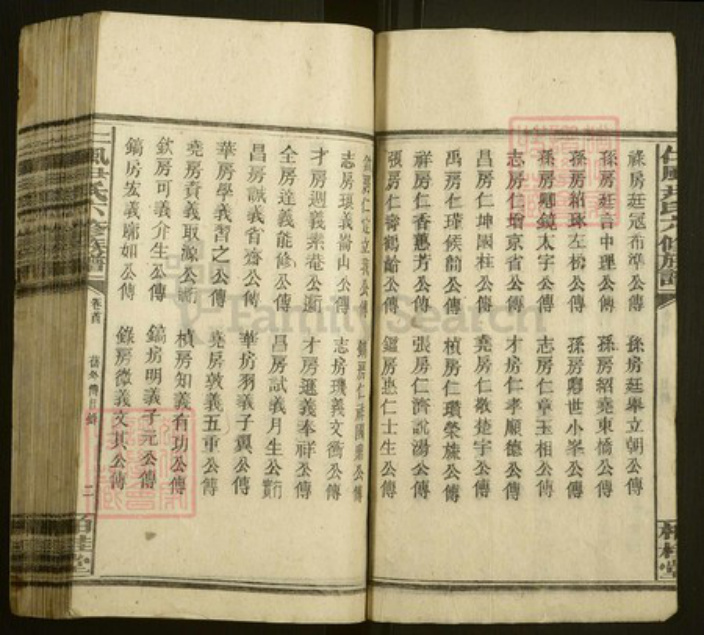 仁風尹氏六修族譜
祿房廷冠布準公傳 孫房廷舉立朝公傳
孫房廷言中理公傳 孫房紹堯東橋公傳
孫房紹琢左梯公傳 孫房懸世小峯公傳
孫房懸鏡太宇公傳 志房仁章玉相公傳
志房仁增京省公傳 才房仁孝順德公傳
昌房仁坤國柱公傳 堯房仁敬楚宇公傳
禹房仁瑾侯簡公傳 楨房仁瓚榮旒公傳
祥房仁香惠芳公傳 張房仁濟說湯公傳
張房仁壽鶴齡公傳 鑑房惠仁士生公傳
志房瑛義崙山公傳 志房璣義文衡公傳
才房迥義素菴公 才房遜義奉祥公傳
全房達義能修公傳 昌房試義月生公行實
昌房誠義省齋公傳 華房羽義子翼公傳
華房學義習之公傳 堯房敦義五重公傳
堯房責義取源公 楨房知義有功公傳
欽房可義介生公傳 鎬房明義子元公傳
鎬房宏義廓如公傳 錄房微義文其公傳
仁風尹氏六修族譜 卷首 二
FamilySearch